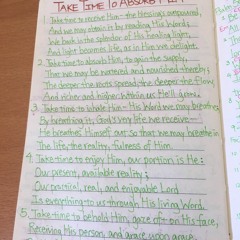 TAKE TIME TO ABSORB HIM
1. Take time to receive Him - the blessings unbound,
And we may obtain it by reading His Word;
We bask in the splendor of His healing light,
And light becomes life, as in Him we delight.
2. Take time to absorb Him, to gain the supply,
That we may be watered and nourished thereby
The deeper the roots spread, the deeper the flow,
And richer and higher within us He'll grow.
3. Take time to inhale Him - His Word we may breathe;
By breathing it, God's very life we receive
He breathes Himself out so that we may breathe in
The life, the reality, fulness of Him.
4. Take time to enjoy Him, our portion is He;
Our present, available reality;
Our practical, real, and enjoyable Lord
Is everything to us through His living Word.
5. Take time to behold Him, gaze oft on His face,
Receiving His person, and grace upon grace